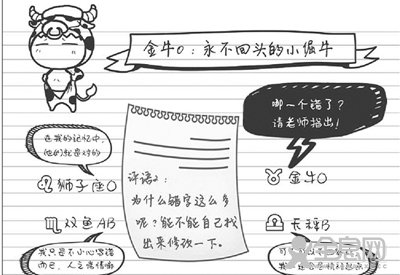 金牛O：永不回头的小倔牛
哪一个错了？
请老师指出!
在我的记忆中，
他们就是对的
狮子座O
金牛O
评语2：
为什么错字这么多
呢？能不能自己找
出来修改一下。
双鱼AB
秤B
我只是不小心写错
而已，